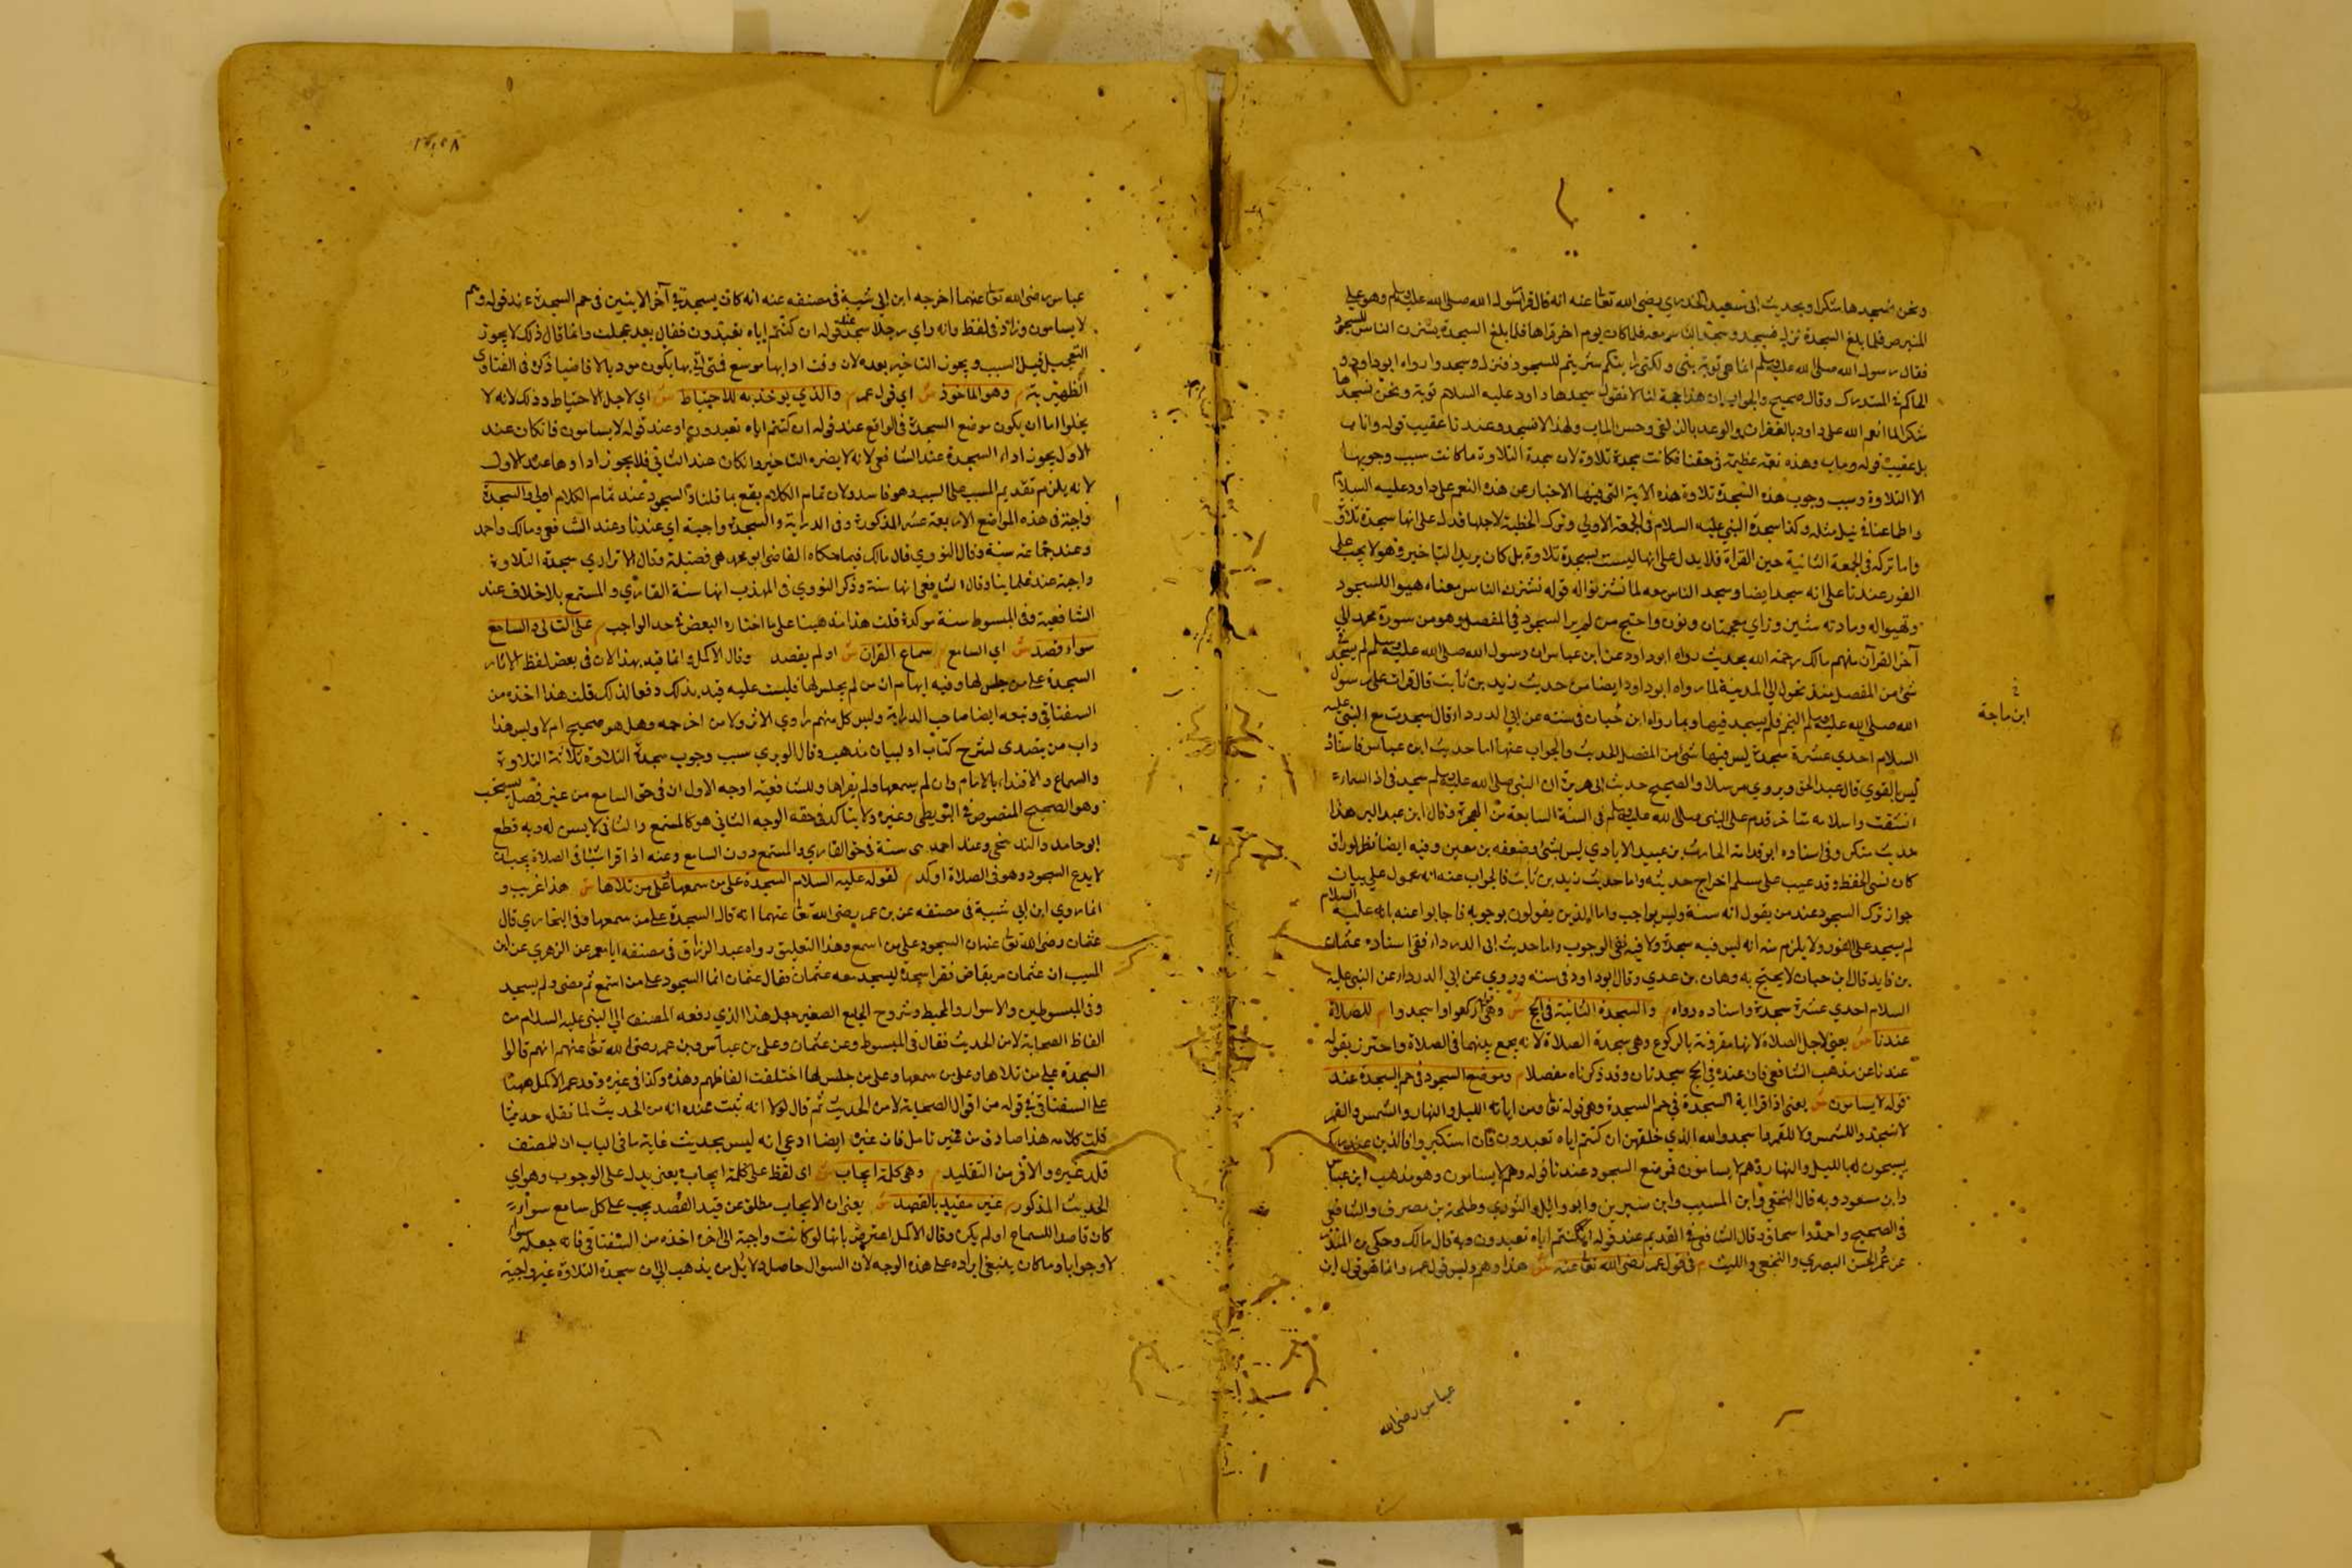 ونحن نسجدها شكرا وبحديث ابي سعيد الخدري رضي الله تعالى عنه انه قال قرأ رسول الله صلى الله عليه وسلم وهو على
المنبر ص فلما بلغ السجدة نزل فسجد وسجد الناس معه فلما كان يوم اخر قراها فلما بلغ السجدة يتشزن الناس للسجود
فقال رسول الله صلى الله عليه وسلم انما هي توبة نبي ولكني رايتكم تشزنتم للسجود فنزل وسجد وا رواه ابو داود و
الحاكم في المستدرك وقال صحيح والجواب ان هذا حجة لنا لانا نقول سجدها داود عليه السلام توبة ونحن نسجدها
شكرا لما انعم الله على داود بالغفران والوعد بالزلفى وحسن الماب ولهذا لا نسجد عندنا عقيب قوله واناب
بل عقيب قوله وماب وهذه نعمة عظيمة في حقنا فكانت سجدة تلاوة لان سجدة التلاوة ما كانت سبب وجوبها
الا التلاوة وسبب وجوب هذه السجدة تلاوة هذه الاية التي فيها الاخبار عن هذه النعم على داود عليه السلام
واطماعنا في نيل مثله وكذا سجدة النبي عليه السلام في الجمعة الاولى وترك الخطبة لاجلها فدل على انها سجدة تلاوة
واما تركه في الجمعة الثانية حين القراة فلا يدل على انها ليست بسجدة تلاوة بل كان يريد التاخير وهو لا يجب على
الفور عندنا على انه سجد ايضا وسجد الناس معه لما تشزنوا له قوله تشزن الناس معناه هيوا للسجود
وتهيوا له ومادته شين وزاي معجمتان ونون واحتج من لم ير السجود في المفصل وهو من سورة محمد الي
آخر القرآن منهم مالك رحمه الله بحديث رواه ابو داود عن ابن عباس ان رسول الله صلى الله عليه وسلم لم يسجد في
شئ من المفصل منذ تحول الي المدينة لما رواه ابو داود ايضا من حديث زيد بن ثابت قال قرات على رسول
الله صلى الله عليه وسلم النجم فلم يسجد فيها وبما رواه ابن حبان في سننه عن ابي الدرداء قال سجدت مع النبي عليه
ابن ماجة
السلام احدي عشرة سجدة ليس فيها شئ من المفصل الحديث والجواب عنها اما حديث ابن عباس فاسناده
ليس بالقوي قال عبد الحق ويروي مرسلا والصحيح حديث ابي هريرة ان النبي صلى الله عليه وسلم سجد في اذا السماء
انشقت واسلامه متاخر قدم على النبي صلى الله عليه وسلم في السنة السابعة من الهجرة وقال ابن عبد البر هذا
حديث منكر وفي اسناده ابو قدامة الحارث بن عبيد الايادي ليس بشئ وضعفه بن معين وفيه ايضا مطر الوراق
كان سئ الحفظ وقد عيب على مسلم اخراج حديثه واما حديث زيد بن ثابت فالجواب عنه انه محمول على بيان
جواز ترك السجود عند من يقول انه سنة وليس بواجب واما الذين يقولون بوجوبه فاجابوا عنه بانه عليه السلام
لم يسجد على الفور ولا يلزم منه انه ليس فيه سجدة ولا فيه نفي الوجوب واما حديث ابي الدرداء ففي اسناده عثمان
بن فايد قال ابن حبان لا يحتج به وهان بن عدي وقال ابو داود في سننه وروي عن ابي الدرداء عن النبي عليه
السلام احدي عشرة سجدة واسناده رواه م والسجدة الثانية في الحج ش وهي اركعوا واسجدوا م للصلاة
عندنا ش يعني لاجل الصلاة لانها مقرونة بالركوع وهي سجدة الصلاة لانه يجمع بينهما في الصلاة واحترز بقوله
عندنا عن مذهب الشافعي فان عنده في الحج سجدتان وقد ذكرناه مفصلا م وموضع السجود في حم السجدة عند
قوله لا يسامون ش يعني اذا قرا اية السجدة في حم السجدة وهي قوله تعالى ومن اياته الليل والنهار والشمس والقمر
لا تسجدوا للشمس ولا للقمر واسجدوا لله الذي خلقهن ان كنتم اياه تعبدون فان استكبروا فالذين عند ربك
يسبحون له بالليل والنهار وهم لا يسامون فوضع السجود عندنا قوله وهم لا يسامون وهو مذهب ابن عباس
وابن مسعود وبه قال النخعي وابن المسيب وابن سيرين وابو وائل والثوري وطلحة بن مصرف والشافعي
في الصحيح واحمد واسحاق وقال الشافعي في القديم عند قوله ان كنتم اياه تعبدون وبه قال مالك وحكى بن المنذر
عن عمر الحسن البصري والنخعي والليث م في قول عمر رضي الله تعالى عنه ش هذا وهم وليس قول عمر وانما هو قول ابن
عباس رضي الله
عباس رضي الله تعالى عنهما اخرجه ابن ابي شيبة في مصنفه عنه انه كان يسجد في آخر الايتين في حم السجدة عند قوله وهم
لا يسامون وزاد في لفظ وانه راي رجلا سجد عند قوله ان كنتم اياه تعبدون فقال بعد عجلت وانما قال ذلك لا يجوز
التعجيل قبل السبب ويجوز التاخير بعده لان وقت ادايها موسع فمتى اتى بها يكون موديا لا قاضيا ذكره في الفتاوى
الظهيرية م وهو الماخوذ ش اي قول عمر م والذي يوخذ به للاحتياط ش اي لاجل الاحتياط وذلك لانه لا
يخلوا اما ان يكون موضع السجدة في الواقع عند قوله ان كنتم اياه تعبدون او عند قوله لا يسامون فان كان عند
الاول يجوز اداء السجدة عند الشافعي لانه لا يضره التاخير وان كان عند الثاني فلا يجوز اداوها عند الاول
لانه يلزم تقديم المسبب على السبب وهو فاسد ولان تمام الكلام يقع بما قلنا والسجود عند تمام الكلام اولى والسجدة
واجبة في هذه المواضع الاربعة عشر المذكورة وفي الدراية والسجدة واجبة اي عندنا وعند الشافعي ومالك واحمد
وعند جماعة سنة وقال النووي قال مالك فيما حكاه القاضي ابو محمد هي فضيلة وقال الاترازي سجدة التلاوة
واجبة عند علماينا وقال الشافعي انها سنة وذكر النووي في المهذب انها سنة القاري والمستمع بلا خلاف عند
الشافعية وفي المبسوط سنة موكدة قلت هذا مذهبنا على ما اختاره البعض في حد الواجب م على التالي والسامع
سواء قصد ش اي السامع م سماع القران ش او لم يقصد وقال الاكمل وانما قيد بهذا لان في بعض لفظ الاثار
السجدة على من جلس لها وفيه ايهام ان من لم يجلس لها فليست عليه فقيد بذلك دفعا لذلك قلت هذا اخذه من
السغناقي وتبعه ايضا صاحب الدراية وليس كل منهم راوي الاثر ولا من اخرجه وهل هو صحيح ام لا وليس هذا
داب من يتصدى لشرح كتاب او لبيان مذهب وقال الوبري سبب وجوب سجدة التلاوة ثلاثة التلاوة
والسماع والاقتداء بالامام وان لم يسمعها ولم يقراها وللشافعية اوجه الاول ان في حق السامع من غير قصد يستحب
وهو الصحيح المنصوص في البويطي وغيره ولا يتاكد في حقه الوجه الثاني هو كالمستمع والثالث لا يسن له وبه قطع
ابو حامد والبندنيجي وعند احمد هي سنة في حق القاري والمستمع دون السامع وعنه اذا قراها في الصلاة يجب ان
لا يدع السجود وهو في الصلاة اوكد م لقوله عليه السلام السجدة على من سمعها على من تلاها ش هذا غريب و
انما روي ابن ابي شيبة في مصنفه عن بن عمر رضي الله تعالى عنهما انه قال السجدة على من سمعها وفي البخاري قال
عثمان رضي الله تعالى عنه ان السجود على من استمع وهذا التعليق رواه عبد الرزاق في مصنفه انا معمر عن الزهري عن ابن
المسيب ان عثمان مر بقاص فقرا سجدة ليسجد معه عثمان فقال عثمان انما السجود على من استمع ثم مضى ولم يسجد
وفي المبسوطين والاسرار والمحيط وشروح الجامع الصغير جعل هذا الذي رفعه المصنف الي النبي عليه السلام من
الفاظ الصحابة لا من الحديث فقال في المبسوط وعن عثمان وعلي بن عباس وبن عمر رضي الله تعالى عنهم انهم قالوا
السجدة على من تلاها وعلى من سمعها وعلى من جلس لها اختلفت الفاظهم وهذه وكذا في غيره وقد عمر الاكمل ههنا
على السغناقي في قوله من اقوال الصحابة لا من الحديث ثم قال لولا انه ثبت عنده انه من الحديث لما نقله حديثا
قلت كلامه هذا صادر من غير تامل فان غيره ايضا ادعي انه ليس بحديث غاية ما في الباب ان المصنف
قلد غيره والافر من التقليد م وهي كلمة ايجاب ش اي لفظ على كلمة ايجاب يعني يدل على الوجوب وهو اي
الحديث المذكور م غير مقيد بالقصد ش يعني ان الايجاب مطلق عن قيد القصد يجب على كل سامع سواء
كان قاصدا للسماع او لم يكن وقال الاكمل اعترض بانها لو كانت واجبة الى اخره اخذه من السغناقي فانه جعله سوالا
لا وجوابا وما كان ينبغي ايراده على هذه الوجه لان السوال حاصل دلايل من يذهب الي ان سجدة التلاوة غير واجبة